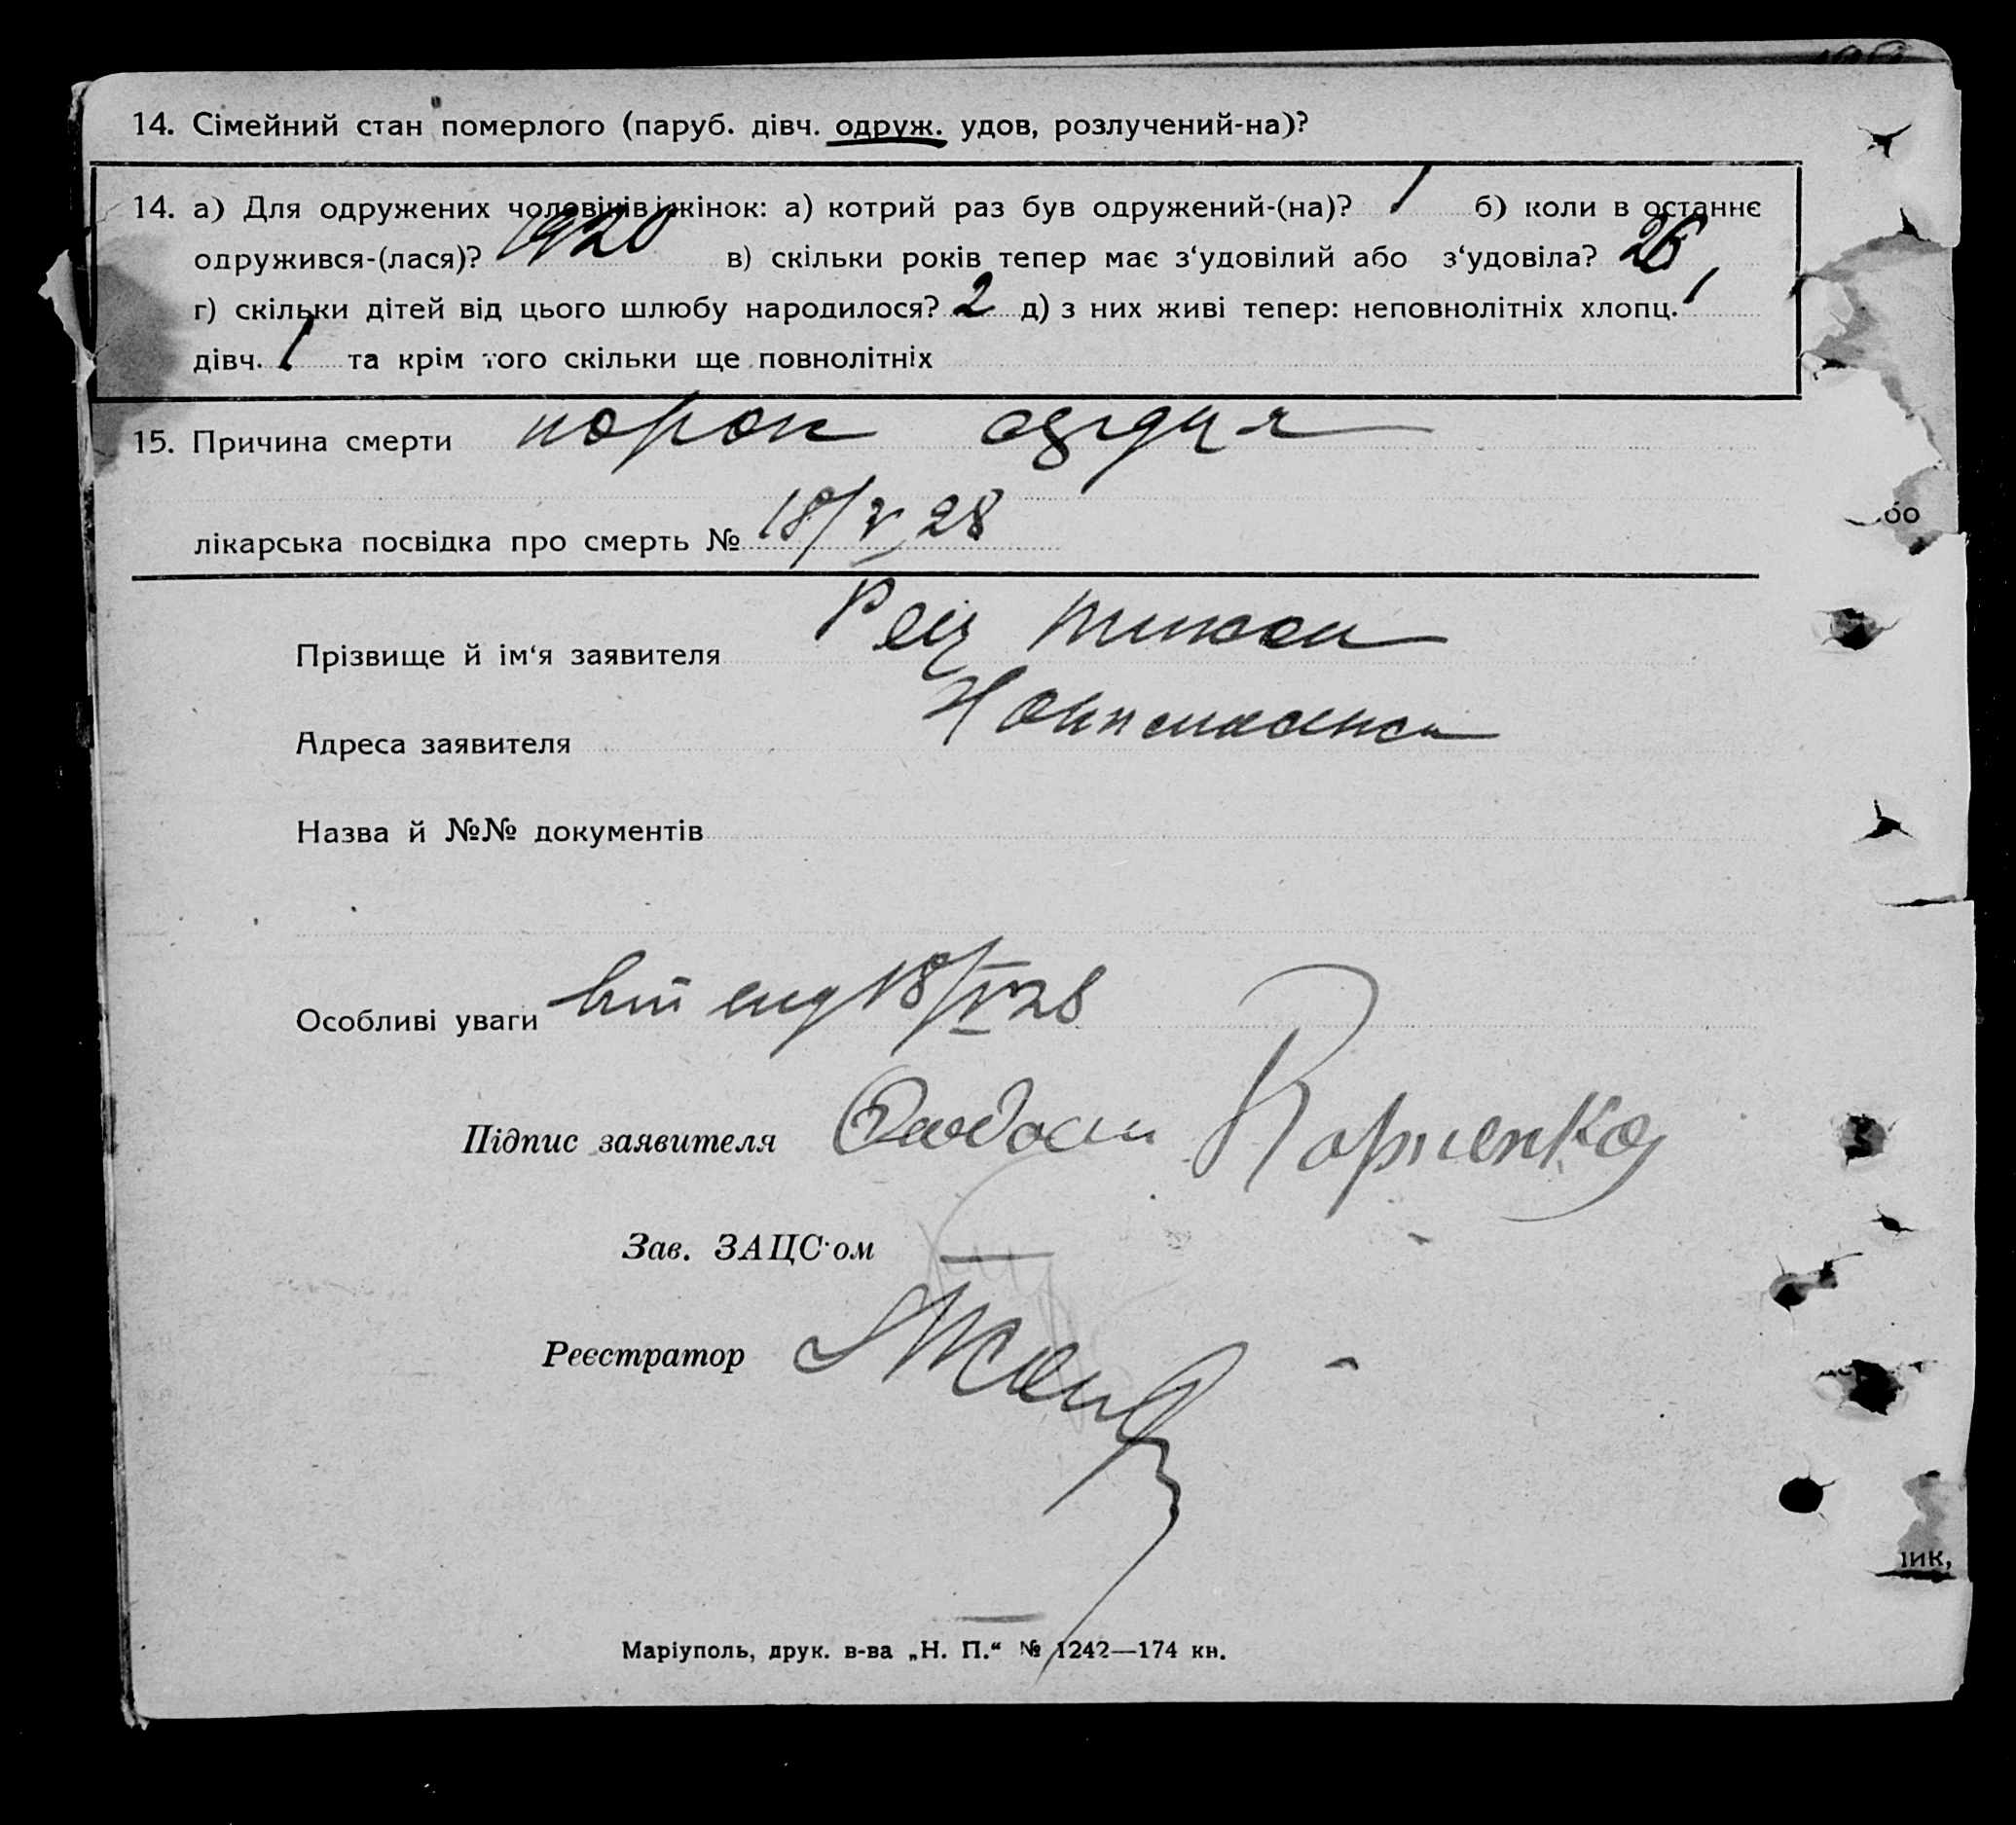 14. Сімейний стан померлого (паруб. дівч. одруж. удов, розлучений-на)?
14. а) Для одружених чоловіків і жінок: а) котрий раз був одружений-(на)? 1 б) коли в останнє
одружився-(лася)? 1920 в) скільки років тепер має з‘удовілий або з‘удовіла? 26
г) скільки дітей від цього шлюбу народилося? 2 д) з них живі тепер: неповнолітніх хлопц. 1
дівч. 1 та крім того скільки ще повнолітніх
15. Причина смерти порок сердця
лікарська посвідка про смерть № 18/V 28
бо
Прізвище й ім‘я заявителя
Адреса заявителя
Назва й №№ документів
Особливі уваги 18/V 28
Підпис заявителя
Зав. ЗАЦС‘ом
Реєстратор
ник,
Маріуполь, друк. в-ва „Н. П.“ № 1242—174 кн.